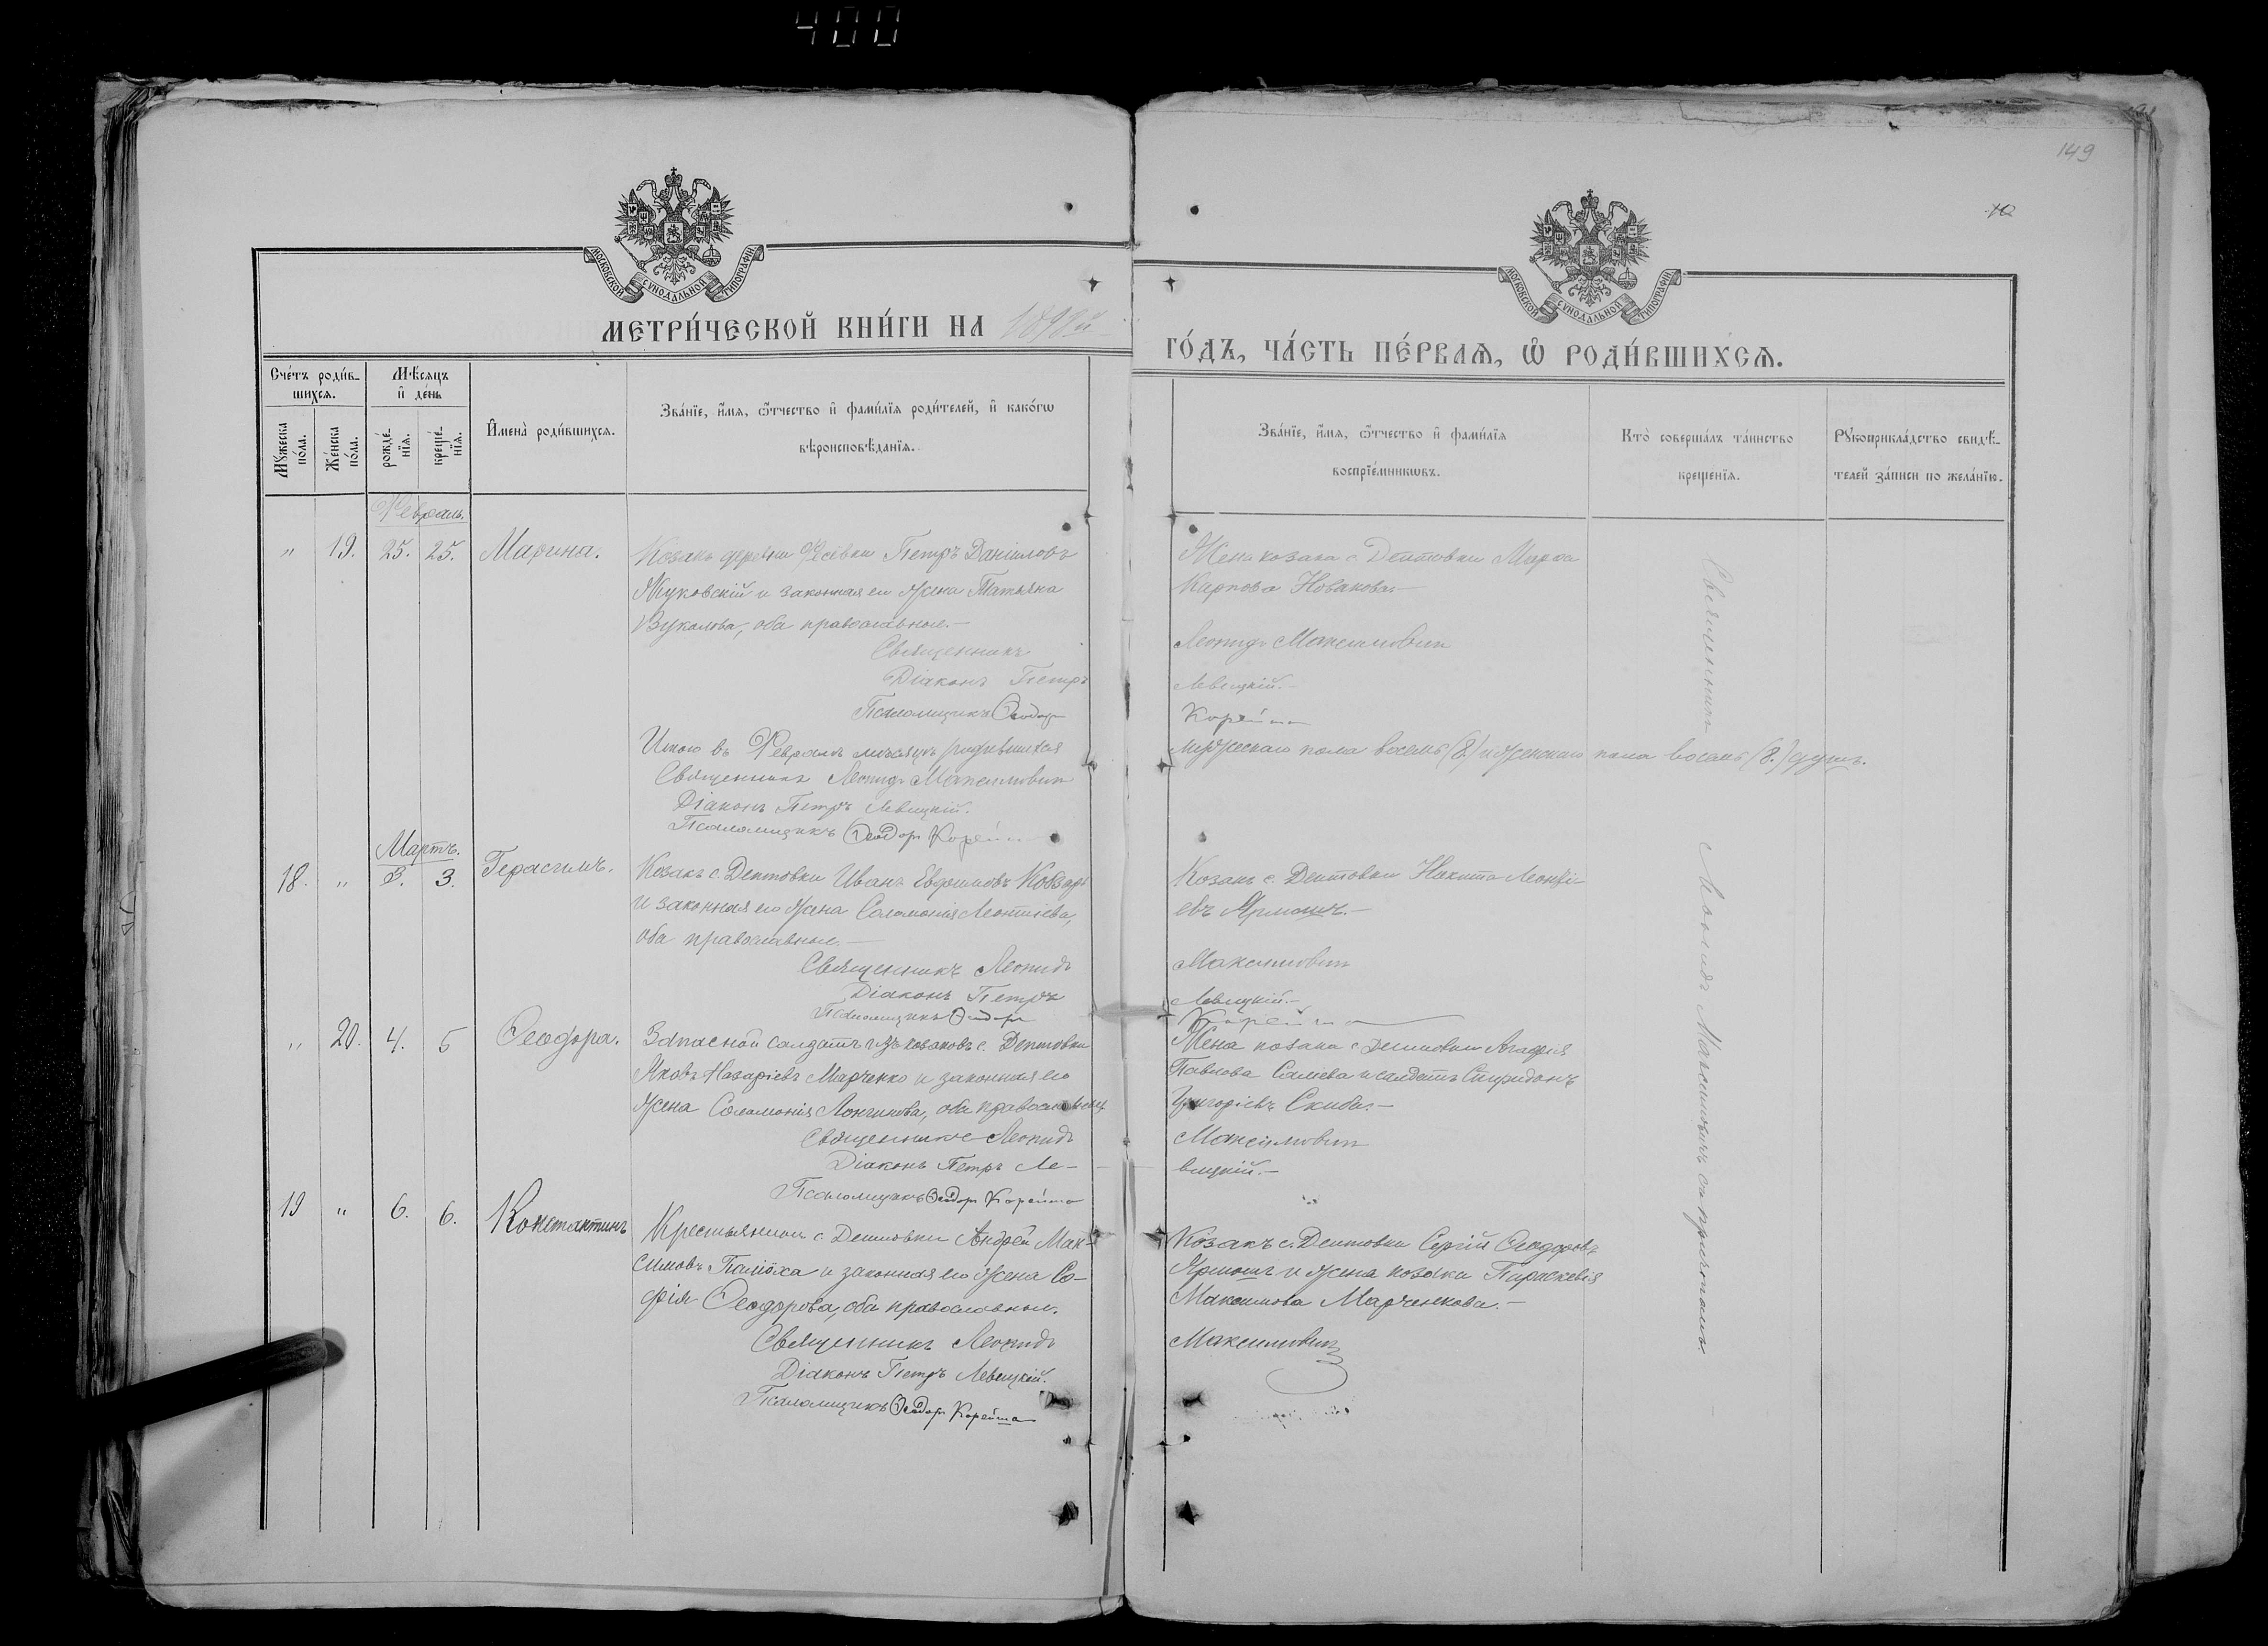 400
149
МОСКОВСКОЙ СѴНОДАЛЬНОЙ ТИПОГРАФІИ
МОСКОВСКОЙ СѴНОДАЛЬНОЙ ТИПОГРАФІИ
МЕТРИ́ЧЕСКОЙ КНИ́ГИ НА
ГО́ДЪ, ЧА́СТЬ ПЕ́РВАѦ, Ѽ РОДИ́ВШИХСѦ.
Сче́тъ роди́в-
шихсѧ.
Мѣ́сѧцъ
и҆ де́нь
Мꙋ́жеска по́ла.
Же́нска по́ла.
рожде́-
нїѧ.
креще́-
нїѧ.
И҆мена̀ роди́вшихсѧ.
Зва́нїе, и҆́мѧ, ѻ҆́тчество и҆ фами́лїѧ роди́телей, и҆ како́гѡ
вѣроисповѣ́данїѧ.
Зва́нїе, и҆́мѧ, ѻ҆́тчество и҆ фами́лїѧ
воспрїе́мникѡвъ.
Кто̀ соверша́лъ та́инство
креще́нїѧ.
Рꙋкоприкла́дство свидѣ́-
телей за́писи по жела́нїю.
Февраль.
" 19. 25. 25. Марина.
Козакъ деревни Петръ Даніиловъ
Жуковскій и законная его жена Татьяна
Вуколова, оба православные.—
Священникъ
Діаконъ Петръ
Псаломщикъ Ѳеодоръ
Жена козака с. Дептовки Марѳа
Карпова Новакова.—
Леонидъ Максимовичъ
Левицкій.—
Корейша
Итого въ Февралѣ мѣсяцѣ родившихся
мужескаго пола восемь (8.) и женскаго пола восемь (8.) душъ.
Священникъ Леонидъ Максимовичъ
Діаконъ Петръ Левицкій.
Псаломщикъ Ѳеодоръ Корейша
Мартъ.
18. " 3. 3. Герасимъ.
Козакъ с. Дептовки Иванъ Евфимовъ Кобзарь
и законная его жена Соломонія Леонтіева,
оба православные.—
Священникъ Леонидъ
Діаконъ Петръ
Псаломщикъ Ѳеодоръ
Козакъ с. Дептовки Никита Леонті-
евъ Ярмошъ.—
Максимовичъ
Левицкій.—
Корейша
" 20. 4. 5 Ѳеодора.
Запасной солдатъ изъ козаковъ с. Дептовки
Яковъ Назаріевъ Марченко и законная его
жена Соломонія Лонгинова, оба православные.
Священникъ Леонидъ
Діаконъ Петръ Ле-
Псаломщикъ Ѳеодоръ Корейша
Жена козака с. Дептовки Агафія
Павлова и солдатъ Спиридонъ
Григоріевъ Скиба.—
Максимовичъ
вицкій.—
19 " 6. 6. Константинъ
Крестьянинъ с. Дептовки Андрей Мак-
симовъ и законная его жена Со-
фія Ѳеодорова, оба православные.
Священникъ Леонидъ
Діаконъ Петръ Левицкій.
Псаломщикъ Ѳеодоръ Корейша
Козакъ с. Дептовки Сергій Ѳеодоровъ
Ярмошъ и жена козака Параскевія
Максимова Марченкова.—
Максимовичъ
Священникъ Леонидъ Максимовичъ съ причтомъ.